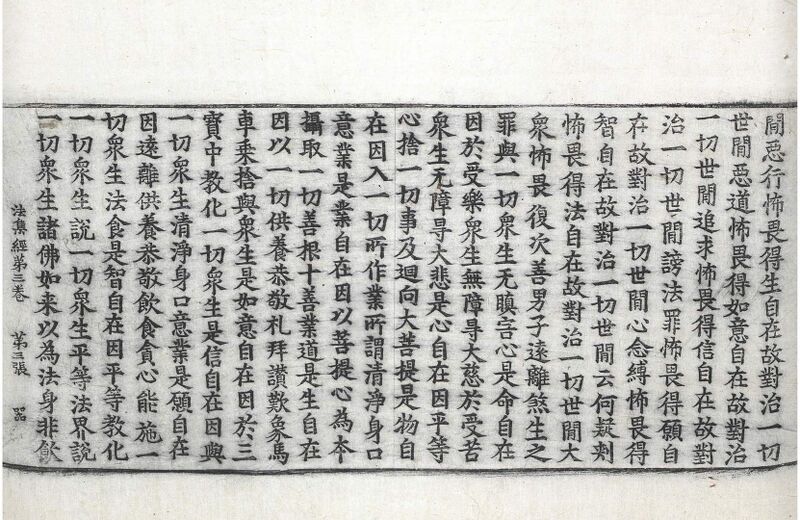 間惡行怖畏得生自在故對治一切
世間惡道怖畏得如意自在故對治
一切世間追求怖畏得信自在故對
治一切世間謗法罪怖畏得願自
在故對治一切世間心念縛怖畏得
智自在故對治一切世間云何疑刾
怖畏得法自在故對治一切世間大
衆怖畏復次善男子遠離煞生之
罪與一切衆生无瞋害心是命自在
因於受樂衆生無障㝵大慈於受苦
衆生无障㝵大悲是心自在因平等
心捨一切事及迴向大菩提是物自
在因入一切所作業所謂清淨身口
意業是業自在因以菩提心為本
攝取一切善根十善業道是生自在
因以一切供養恭敬礼拜讃歎象馬
車乘捨與衆生是如意自在因於三
寶中教化一切衆生是信自在因與
一切衆生清淨身口意業是願自在
因遠離供養恭敬飲食貪心能施一
切衆生法食是智自在因平等教化
一切衆生說一切衆生平等法界說
一切衆生諸佛如来以為法身非飲
法集經第三卷 第三張 器